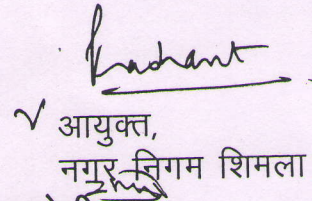 Prashant
आयुक्त,
नगर निगम शिमला